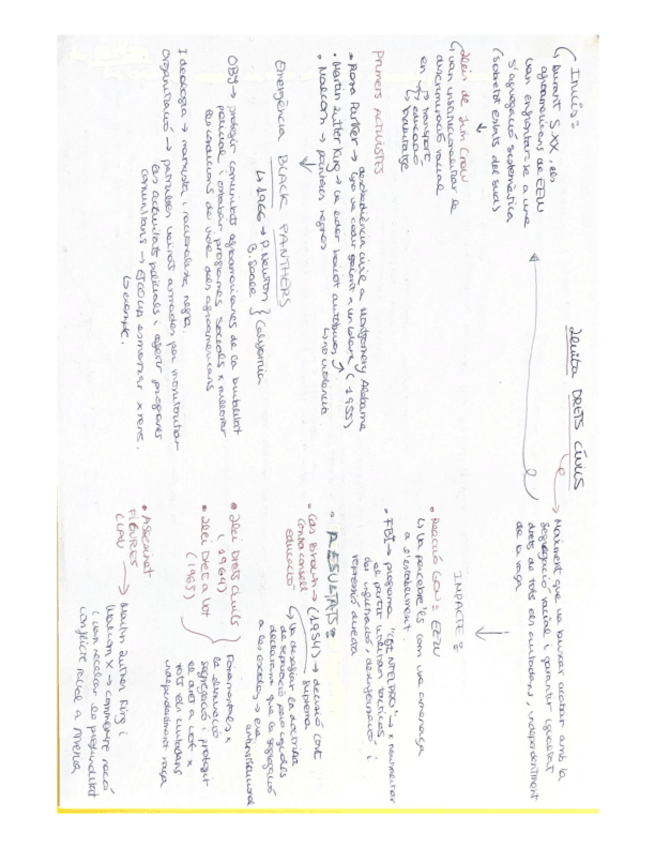 Lluita DRETS CIVILS
→ Moviment que va buscar acabar amb la
segregació racial i garantir igualtat
drets de tots els ciutadans, independentment
de la raça
Inicis:
↳ Durant S XX, els
afroamericans de EEUU
van enfrontar-se a una
segregació sistemàtica
(sobretot estats del sud)
↓
↳ Lleis de Jim Crow
↳ van institucionalitzar la
discriminació racial
en → transport
↳ educació
↳
PRIMERS ACTIVISTES
• Rosa Parker → desobediència civil a Montgomery Alabama
↳ no va cedir seient a un blanc (1955)
• Martin Lutter King → va liderar boicot autobusos
↳ no violència
• Malcom → panteres negres
Emergència BLACK PANTHERS
↳ 1966 → P. Newton } California
B. Seale
OBJ → protegir comunitats afroamericanes de la brutalitat
policial i establir programes socials x millorar
les condicions de vida dels afroamericans
Ideologia → marxista i nacionalista negra.
Organització → patrulles veïnals armades per monitoritzar
les activitats policials i oferir programes
comunitaris → x nens.
↳ exemple.
IMPACTE:
• REACCIÓ GOV: EEUU
↳ Va percebre'ls com una amenaça
a l'establiment
• FBI → programa "COINTELPRO" → x neutralitzar
el partit utilitzant tàctiques
de infiltració, desinformació i
repressió directa
• RESULTATS:
• Cas Brown → (1954) → decisió Cort
contra consell Suprema
educació
↳ va desafiar la doctrina
de separació però iguals
declarant que la segregació
a les escoles → era
anticonstitucional
• Llei DRETS CIVILS
(1964)
• Llei Dret a Vot
(1965)
} Fonamentals x
la eliminació
segregació i protegir
el dret a vot x
tots els ciutadans
independentment raça
• ASSESSINAT
FIGURES
CLAU → Martin Luther King i
Malcom X → commoure nació
i van ressaltar la profunditat
conflicte racial a Amèrica